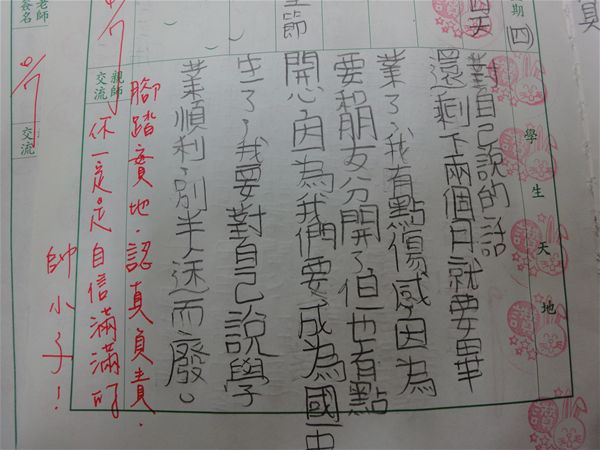 期
(四)
學生天地
對自己說的話
還剩下兩個月就要畢
業了，我有點傷感因為
要和朋友分開了但也有點
開心因為我們要成為國中
生了，我要對自己說學
業順利，別半途而廢。
節
親師交流
腳踏實地，認真負責，
你一定是自信滿滿的
帥小子！
老師簽名
交流